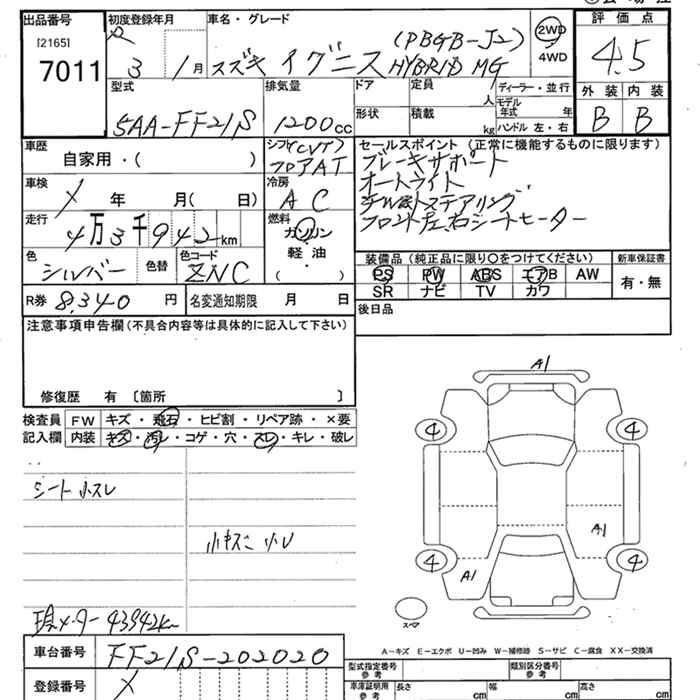 出品番号
[2165]
7011
初度登録年月
R 3 年 1 月
車名・グレード
スズキ イグニス
(PBGB-J2)
HYBRID MG
2WD
4WD
評価点
4.5
型式
5AA-FF21S
排気量
1200cc
ドア
形状
定員 人
積載 kg
ディーラー・並行
モデル年式 年
ハンドル 左・右
外装 内装
B B
車歴
自家用・( )
シフト(CVT)
フロアAT
セールスポイント(正常に機能するものに限ります)
ブレーキサポート
オートライト
ステアリング
フロント左右シートヒーター
車検
X 年 月( 日)
冷房
AC
走行
4万3千942km
燃料
ガソリン・
軽油・
( )
色
シルバー
色替
色コード
ZNC
装備品(純正品に限り○をつけてください)
PS PW ABS エアB AW
SR ナビ TV カワ
新車保証書
有・無
R券 8,340 円
名変通知期限 月 日
後日品
注意事項申告欄(不具合内容等は具体的に記入して下さい)
修復歴 有 〔箇所 〕
検査員
記入欄
FW キズ・飛石・ヒビ割・リペア跡・×要
内装 キズ・汚レ・コゲ・穴・スレ・キレ・破レ
シート小スレ
小キズ
現メーター 43942km
車台番号
FF21S-202020
登録番号
X
A1
4 4
A1
4 4
A1
スペア
A-キズ E-エクボ U-凹み W-補修跡 S-サビ C-腐食 XX-交換済
型式指定番号
参考
類別区分番号
参考
車庫証明用
参考
長さ cm
幅 cm
高さ cm